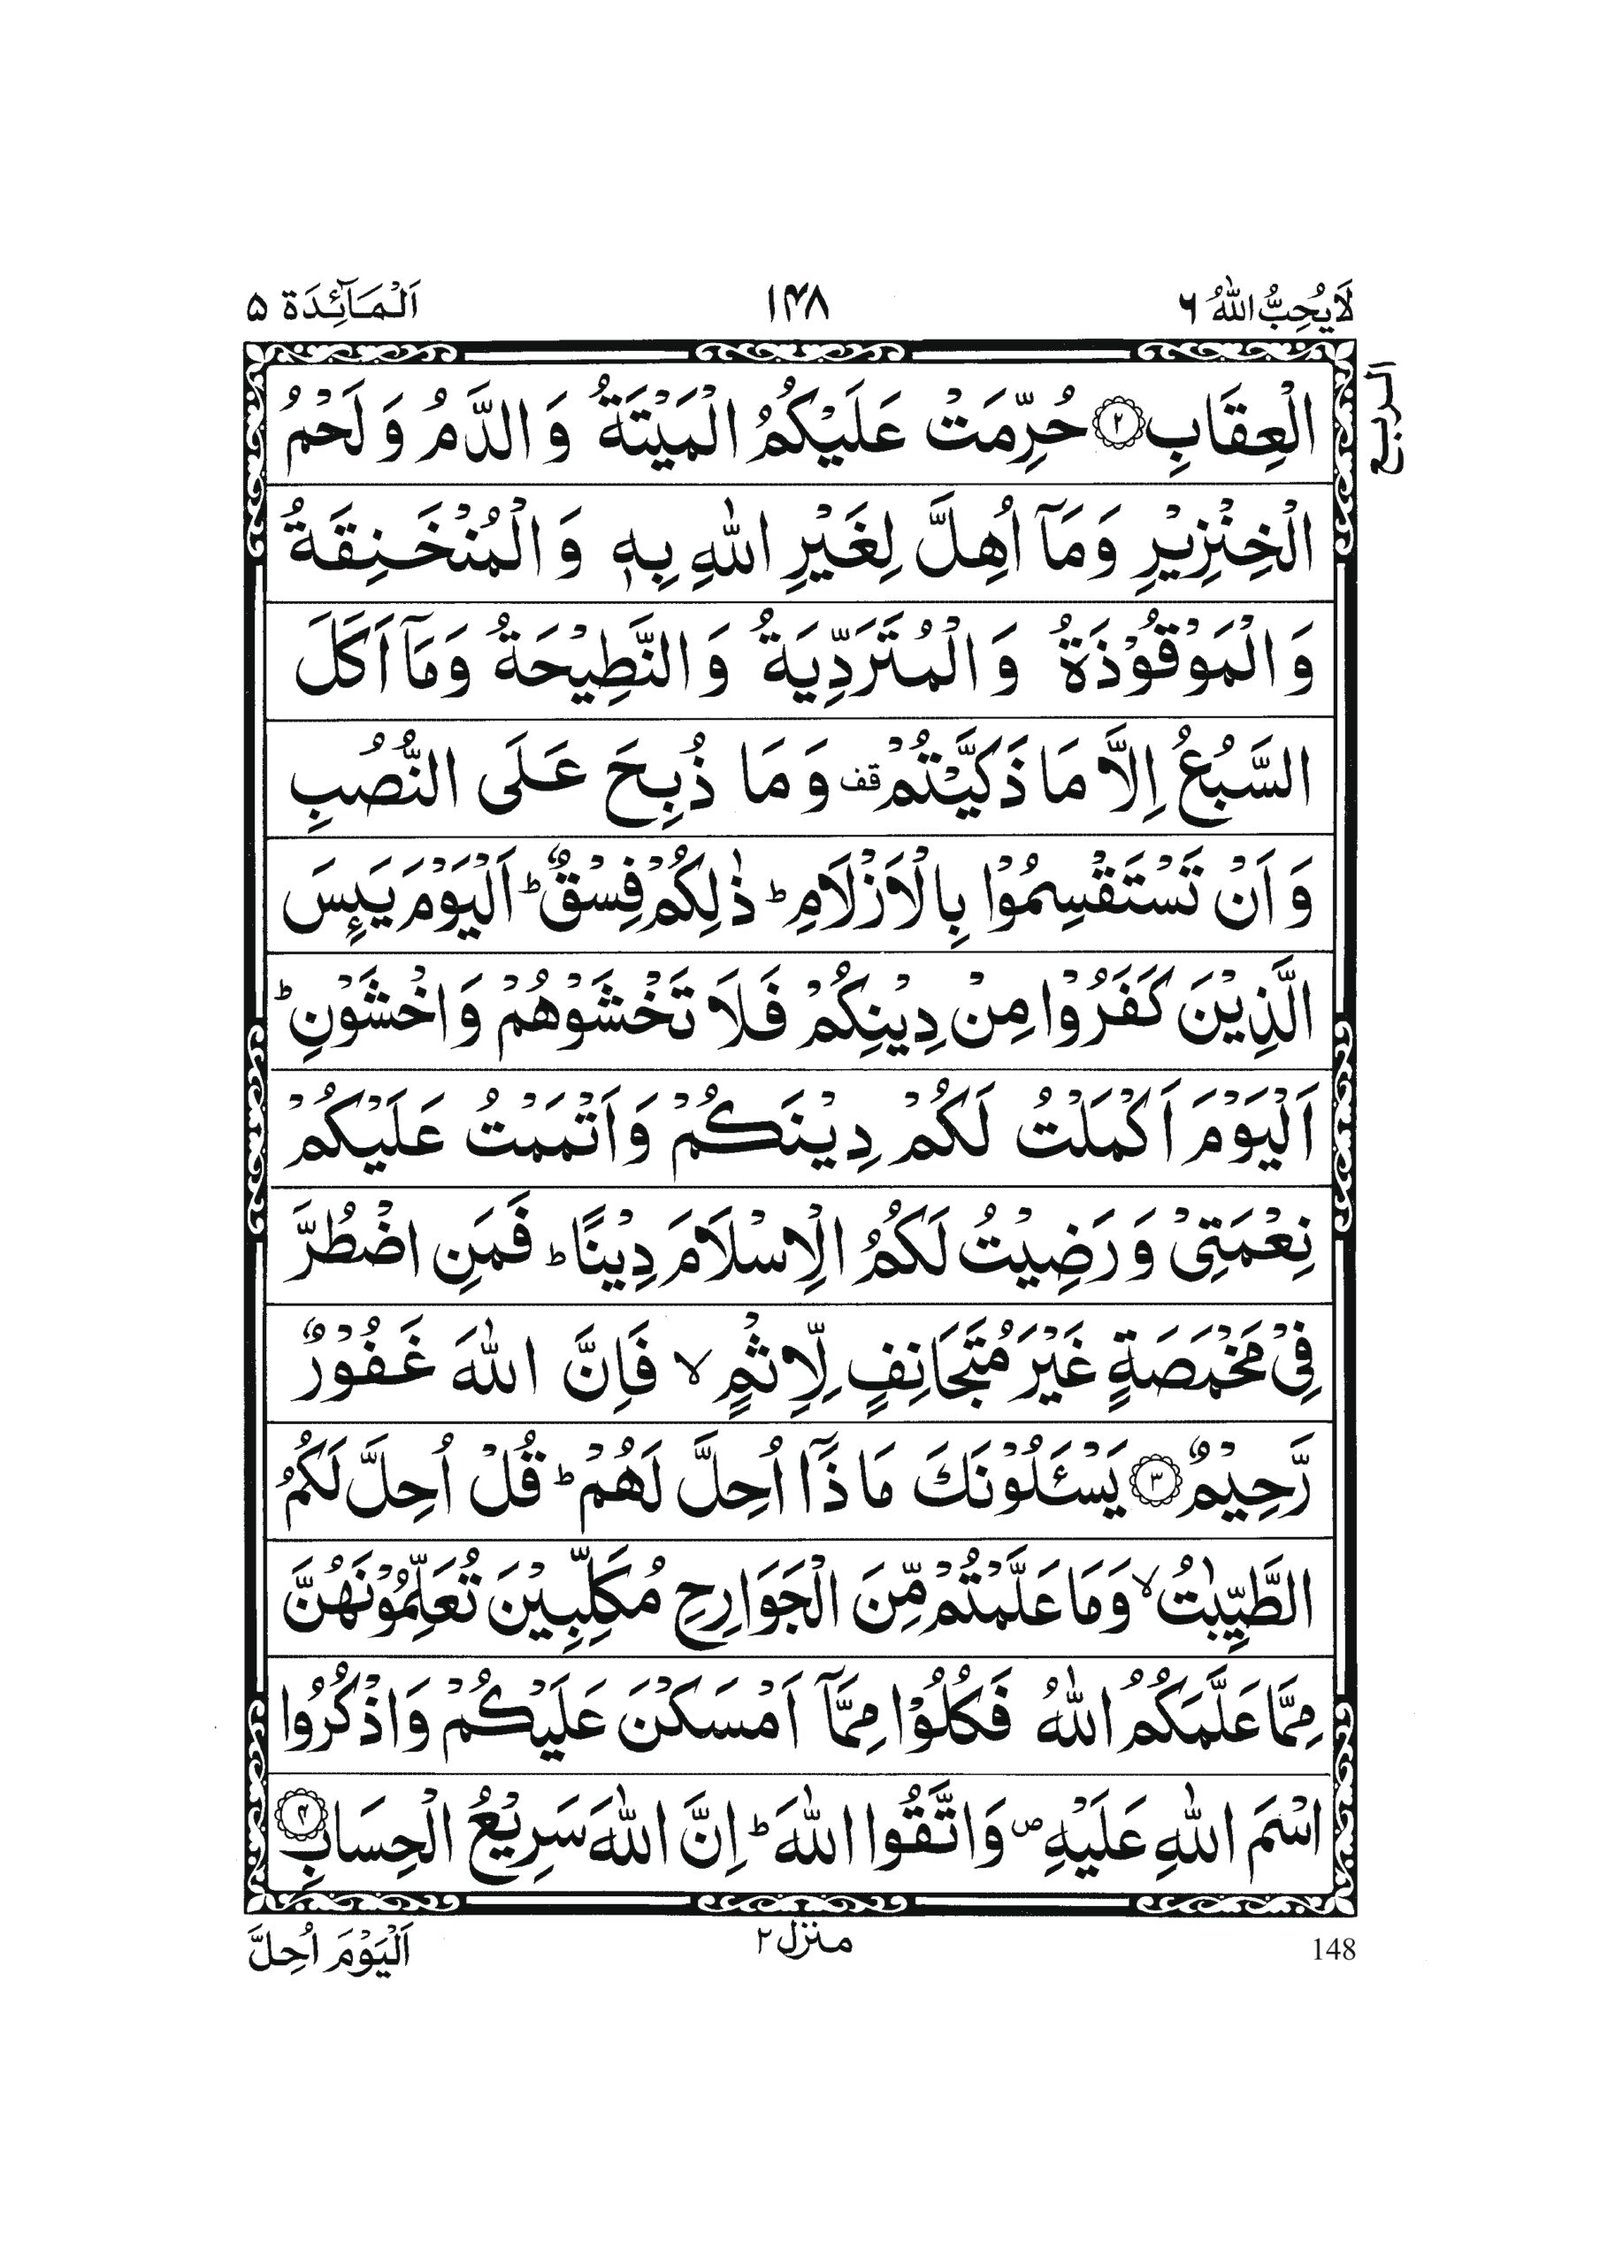 لَا يُحِبُّ اللّٰهُ ٦
١٤٨
اَلْمَآئِدَة ٥
الربع
الْعِقَابِ ۝٢ حُرِّمَتْ عَلَيْكُمُ الْمَيْتَةُ وَ الدَّمُ وَ لَحْمُ
الْخِنْزِيْرِ وَ مَآ اُهِلَّ لِغَيْرِ اللّٰهِ بِهٖ وَ الْمُنْخَنِقَةُ
وَ الْمَوْقُوْذَةُ وَ الْمُتَرَدِّيَةُ وَ النَّطِيْحَةُ وَ مَآ اَكَلَ
السَّبُعُ اِلَّا مَا ذَكَّيْتُمْ قف وَ مَا ذُبِحَ عَلَى النُّصُبِ
وَ اَنْ تَسْتَقْسِمُوْا بِالْاَزْلَامِ ؕ ذٰلِكُمْ فِسْقٌ ؕ اَلْيَوْمَ يَىِٕسَ
الَّذِيْنَ كَفَرُوْا مِنْ دِيْنِكُمْ فَلَا تَخْشَوْهُمْ وَ اخْشَوْنِ ؕ
اَلْيَوْمَ اَكْمَلْتُ لَكُمْ دِيْنَكُمْ وَ اَتْمَمْتُ عَلَيْكُمْ
نِعْمَتِيْ وَ رَضِيْتُ لَكُمُ الْاِسْلَامَ دِيْنًا ؕ فَمَنِ اضْطُرَّ
فِيْ مَخْمَصَةٍ غَيْرَ مُتَجَانِفٍ لِّاِثْمٍ ۙ فَاِنَّ اللّٰهَ غَفُوْرٌ
رَّحِيْمٌ ۝٣ يَسْـَٔلُوْنَكَ مَا ذَآ اُحِلَّ لَهُمْ ؕ قُلْ اُحِلَّ لَكُمُ
الطَّيِّبٰتُ ۙ وَ مَا عَلَّمْتُمْ مِّنَ الْجَوَارِحِ مُكَلِّبِيْنَ تُعَلِّمُوْنَهُنَّ
مِمَّا عَلَّمَكُمُ اللّٰهُ فَكُلُوْا مِمَّآ اَمْسَكْنَ عَلَيْكُمْ وَ اذْكُرُوا
اسْمَ اللّٰهِ عَلَيْهِ ۪ وَ اتَّقُوا اللّٰهَ ؕ اِنَّ اللّٰهَ سَرِيْعُ الْحِسَابِ ۝٤
148
منزل ٢
اَلْيَوْمَ اُحِلَّ